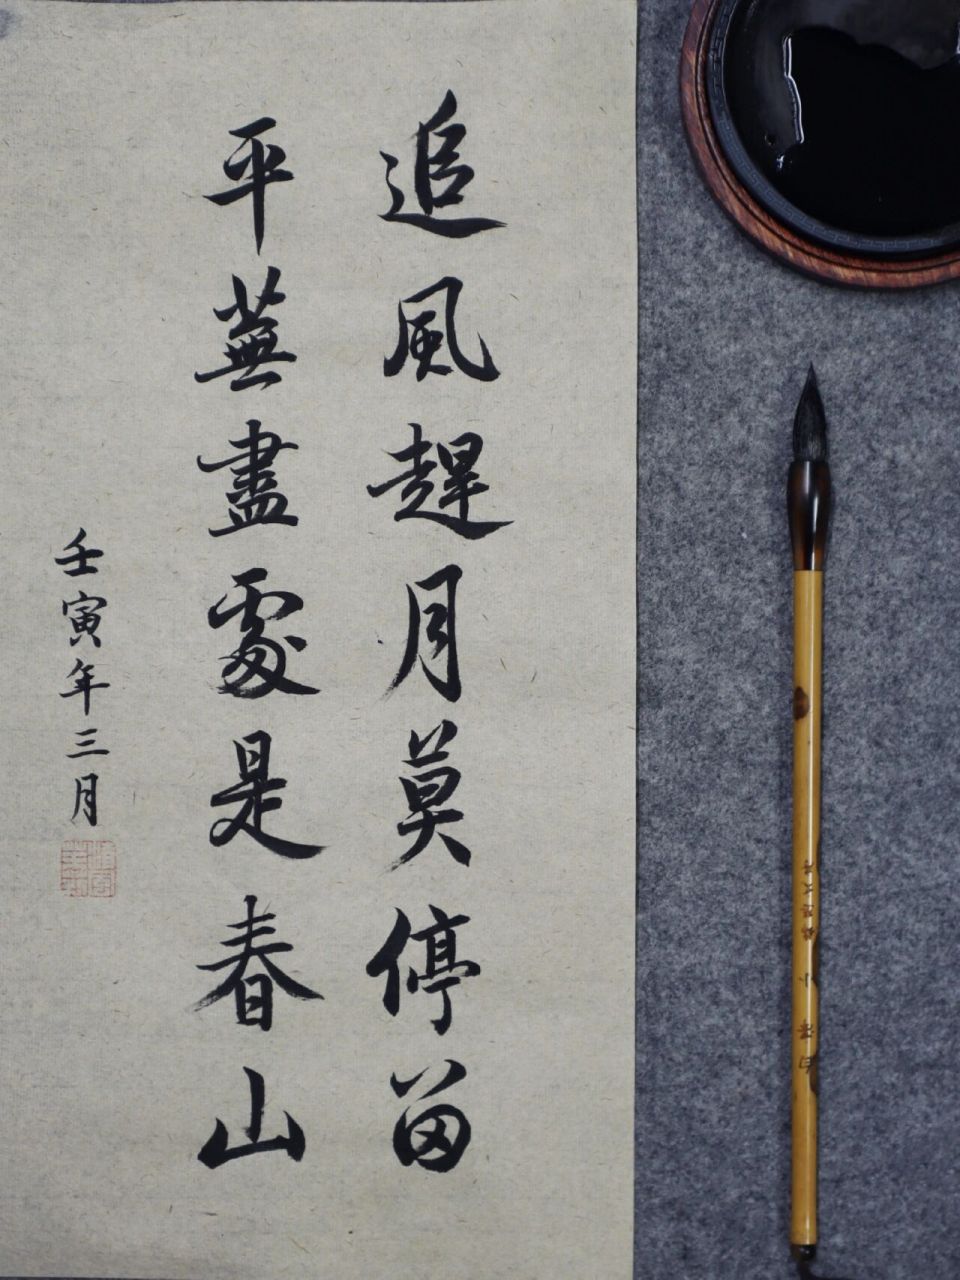 追風趕月莫停留
平蕪盡處是春山
壬寅年三月